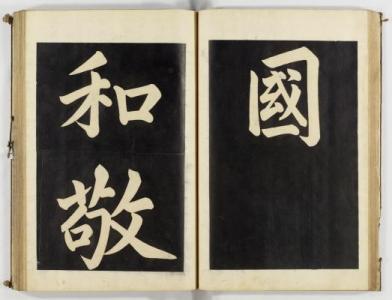 國
和
敬